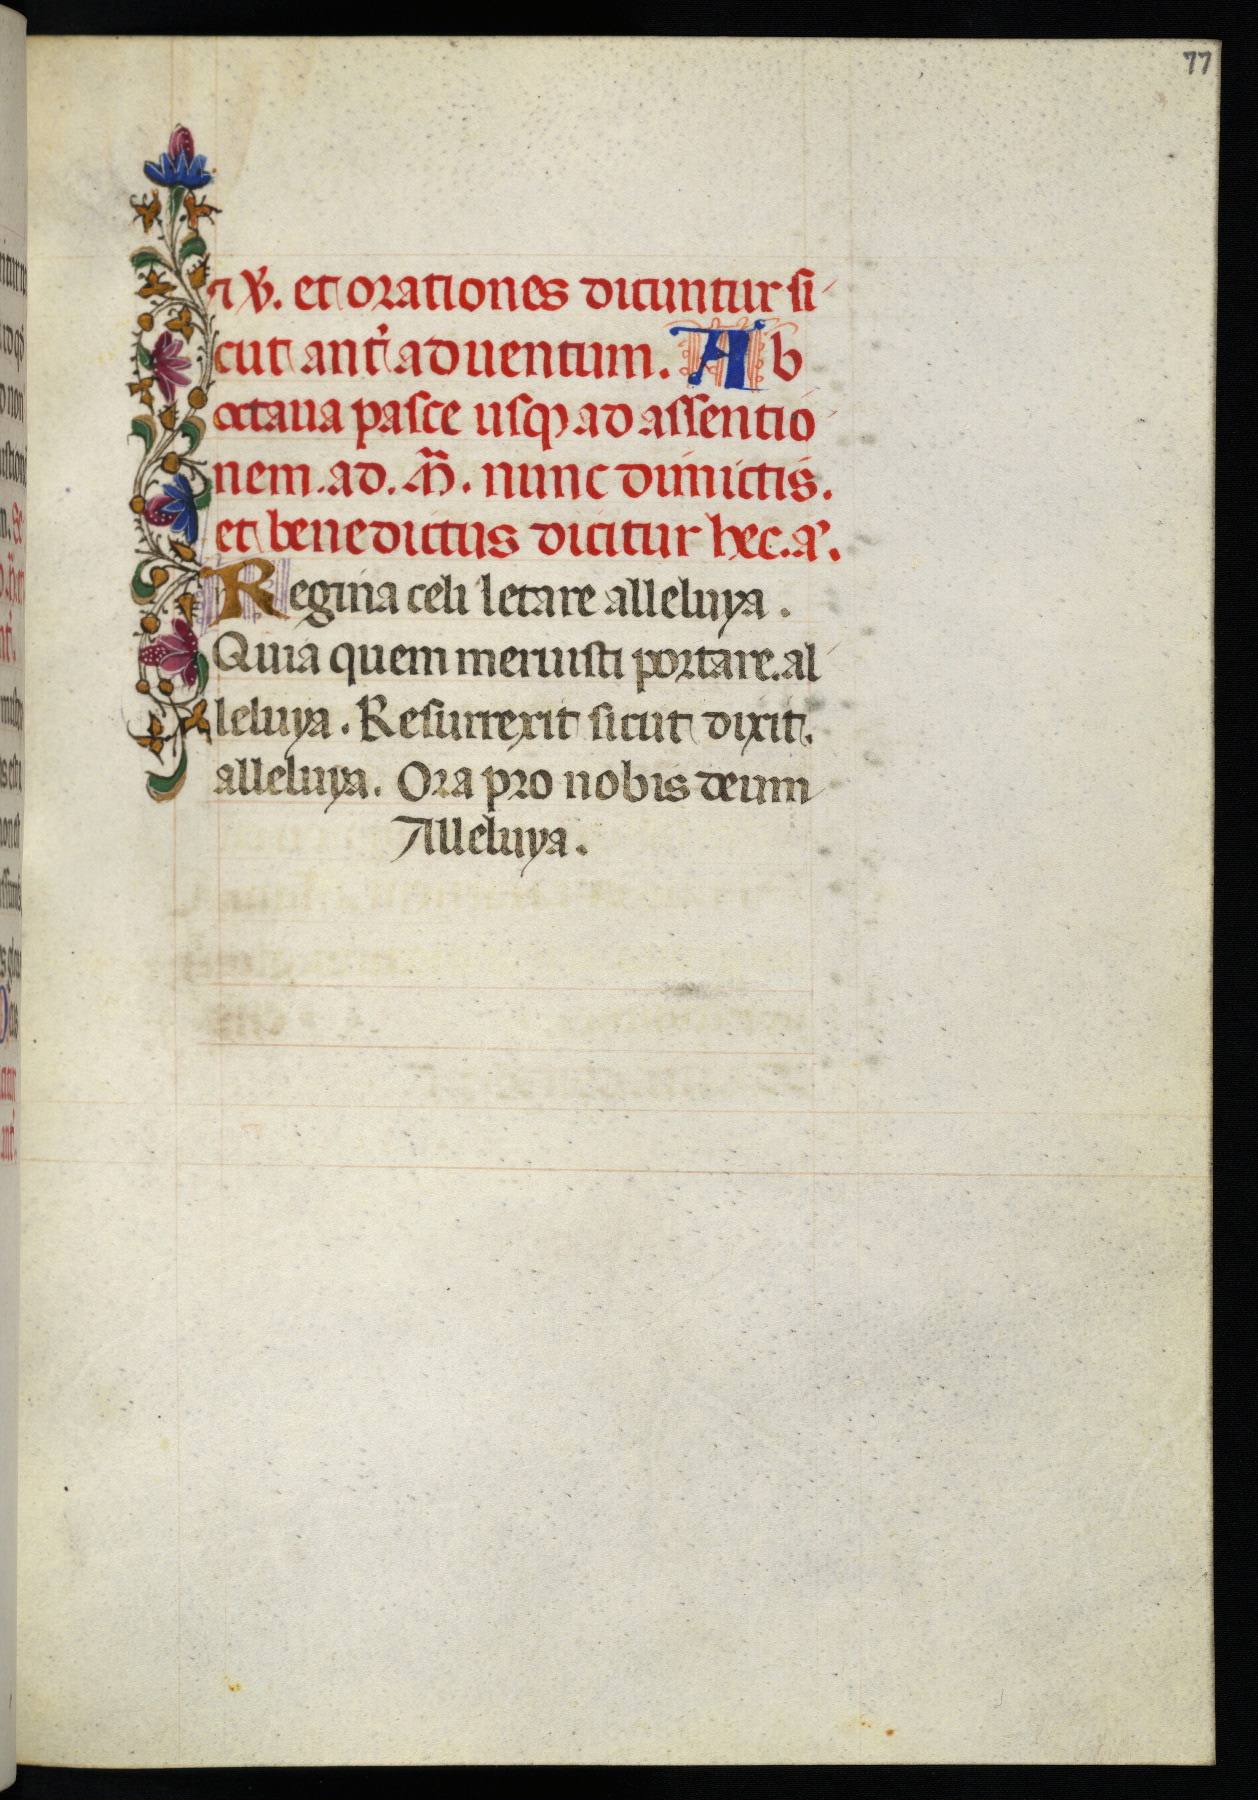 77
⁊ ℣. et orationes dicuntur si
cut ant̉ aduentum. Ab
octaua pasce usqꝫ ad assentio
nem. ad. M̃. nunc dimictis.
et benedictus dicitur hec. a͛.
Regina celi letare alleluya.
Quia quem meruisti portare. al
leluya. Resurrexit sicut dixit.
alleluya. Ora pro nobis deum
Alleluya.